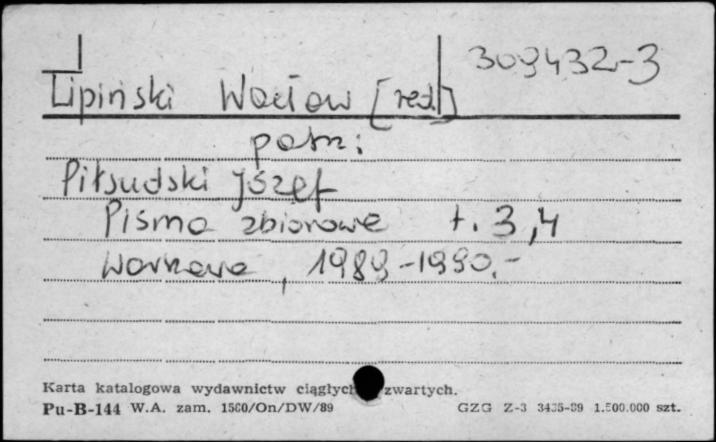 309432-3
Lipiński Wacław [red.]
patrz:
Piłsudski Józef
Pisma zbiorowe t. 3,4
Warszawa, 1989-1990.-
Karta katalogowa wydawnictw ciągłych zwartych.
Pu-B-144 W.A. zam. 1560/On/DW/89 GZG Z-3 3435-89 1.500.000 szt.